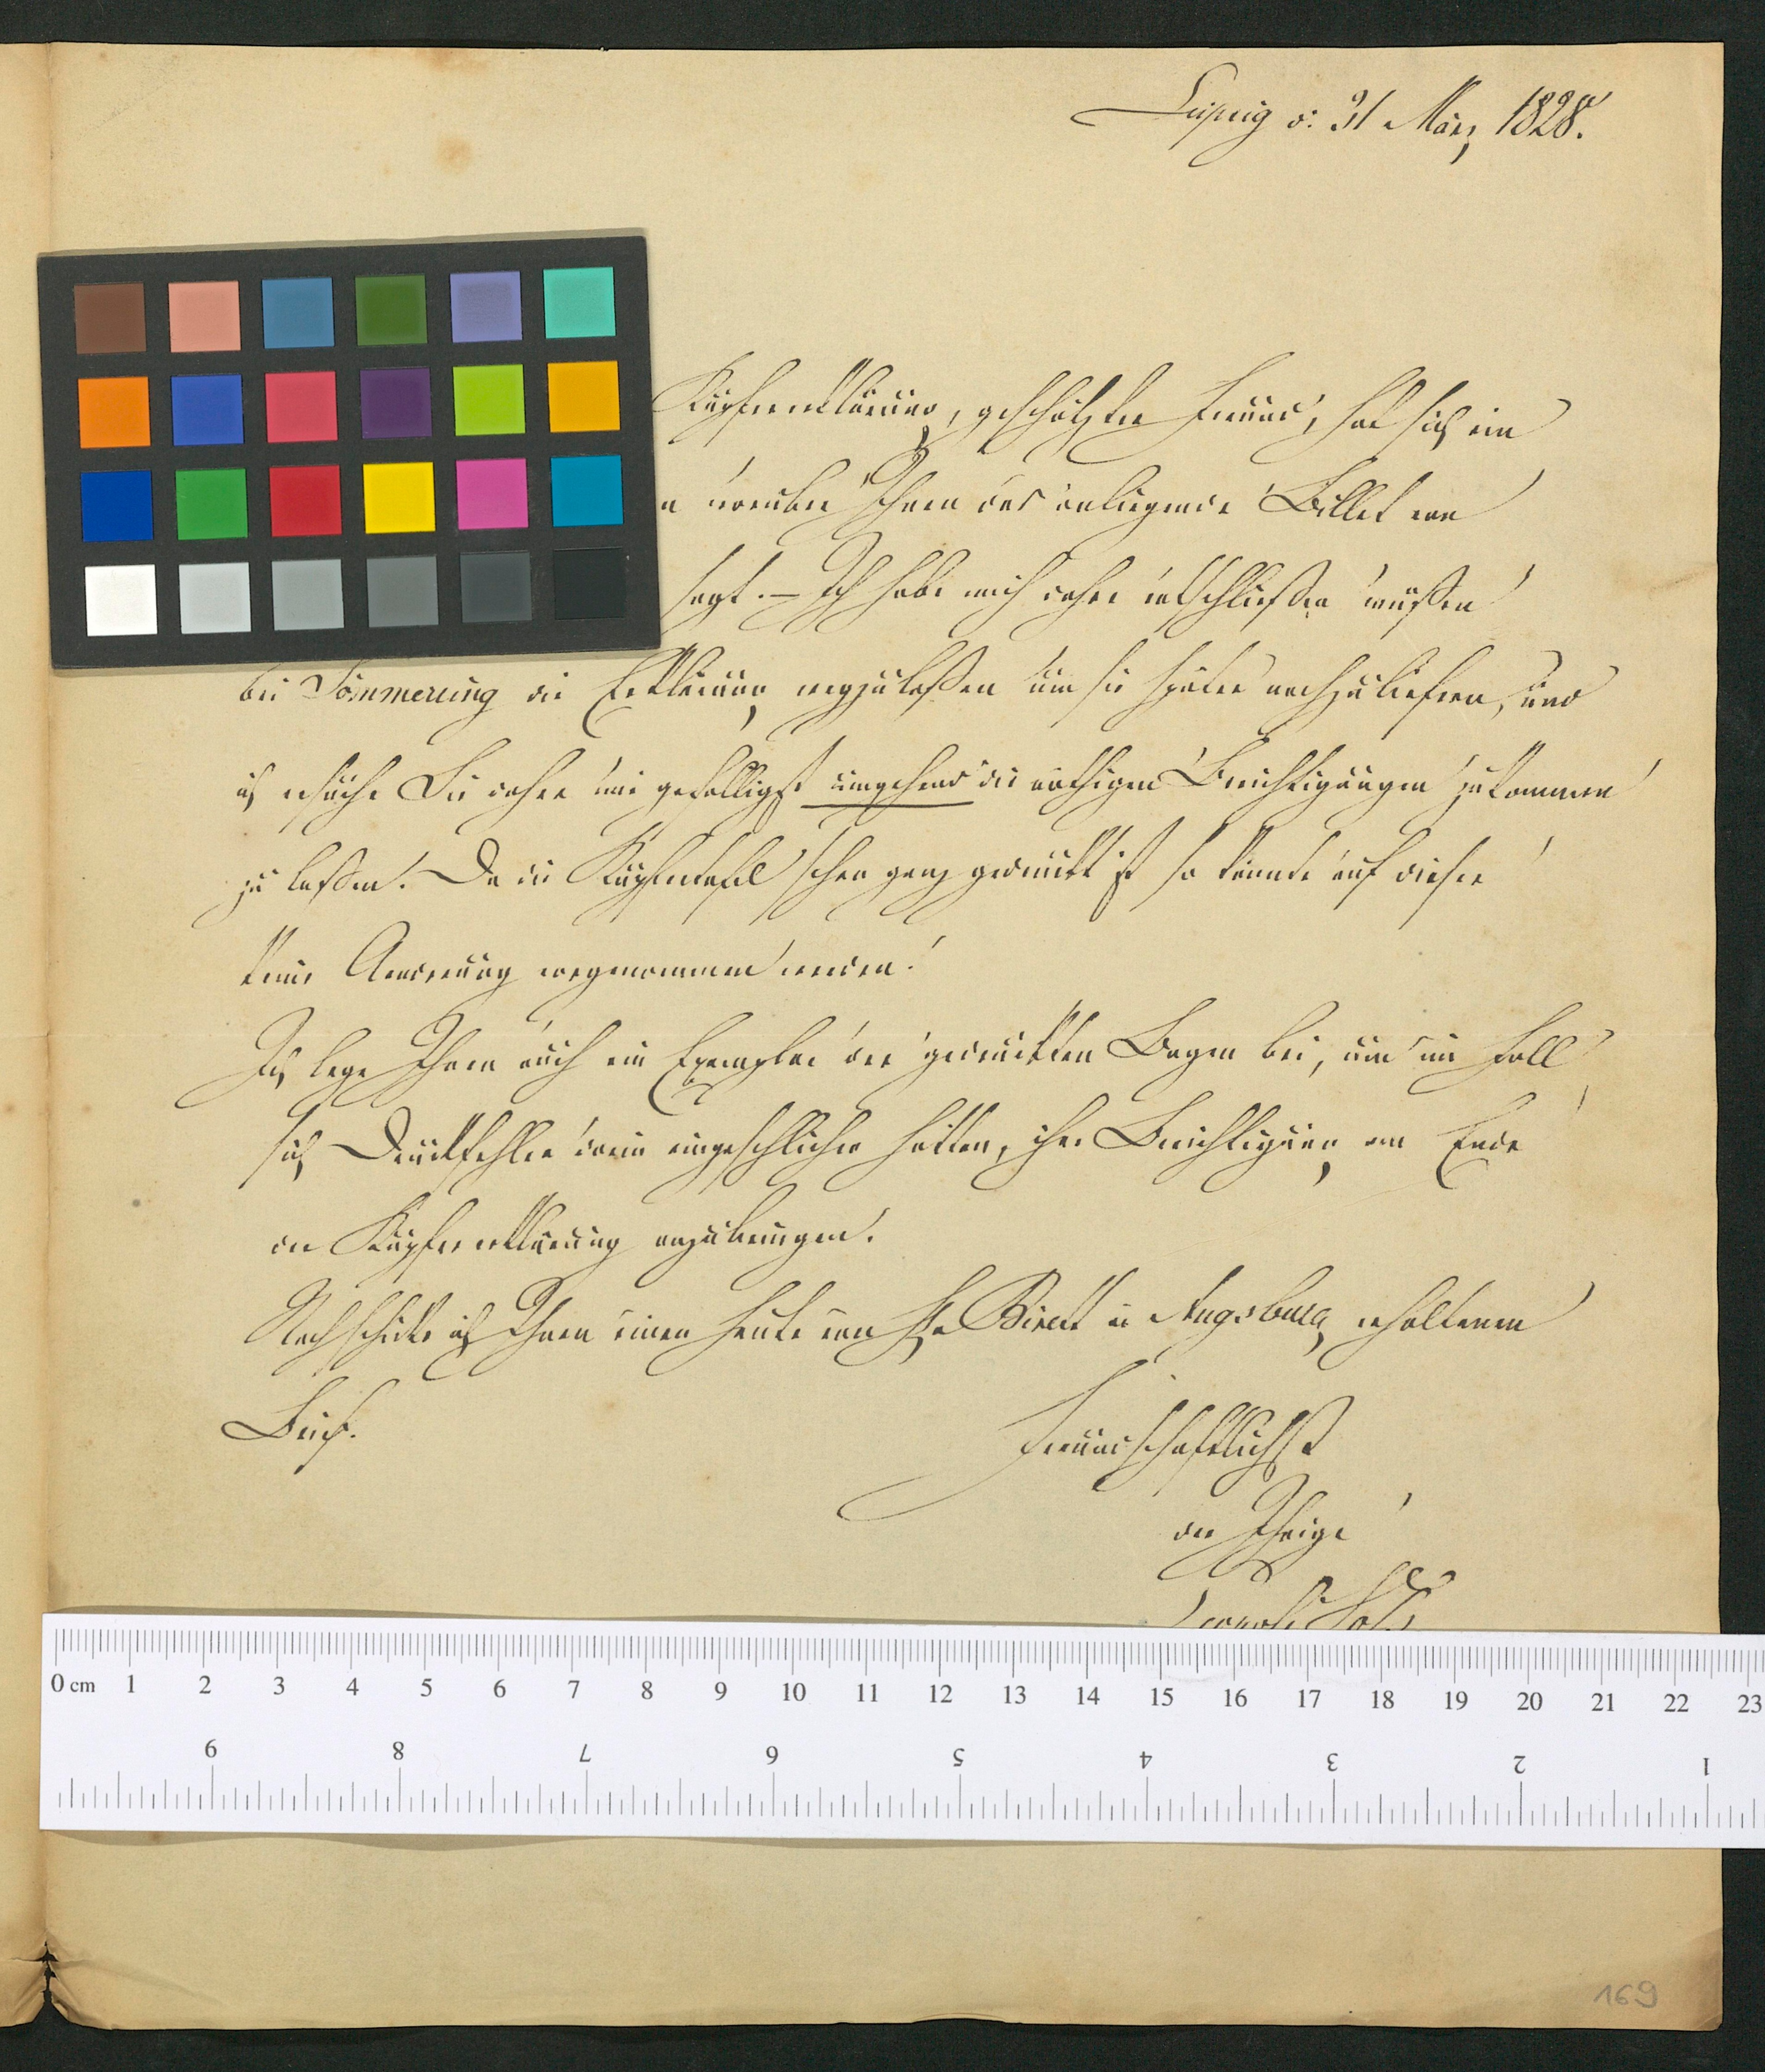 Leipzig d: 31 März 1828.
Kupfererklärung, geschätzter Freund, hat sich ein
n worüber Ihnen das inliegende Billet von
sagt. – Ich habe mich daher entschließen müßen
bei Sömmerring die Erklärung wegzulaßen um sie später nachzuliefern, und
ich ersuche Sie daher mir gefälligst umgehend die nöthigen Berichtigungen zukommen
zu laßen. Da die Kupfertafel schon ganz gedruckt ist so könnte auf dieser
keine Aenderung vorgenommen werden.
Ich lege Ihnen auch ein Exemplar der gedruckten Bogen bei, um im Fall
sich Druckfehler darin eingeschlichen hätten, ihre Berichtigung am Ende
der Kupfererklärung anzubringen.
Nach schicke ich Ihnen einen heute von Hr in Augsburg erhaltenen
Brief.
Freundschaftlichst
der Ihrige
Leopold Voß
0 cm 1 2 3 4 5 6 7 8 9 10 11 12 13 14 15 16 17 18 19 20 21 22 23
9 8 7 6 5 4 3 2 1
169